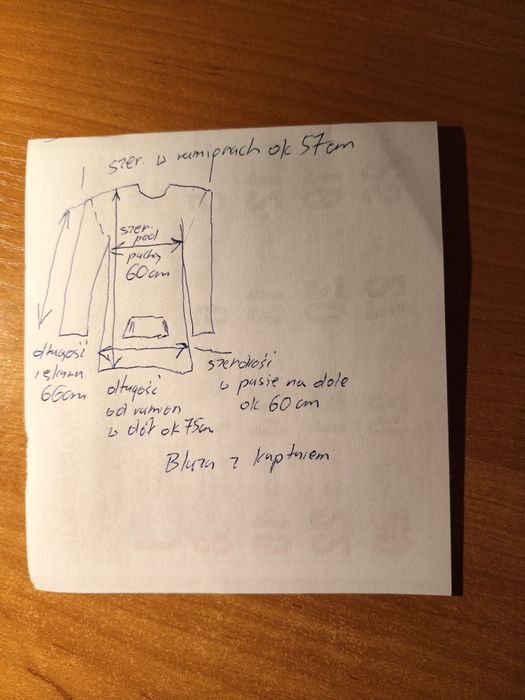 szer. w ramionach ok 57cm
szer.
pod
pachą
60cm
długość
rękawa
66cm
długość
od ramion
w dół ok 75cm
szerokość
w pasie na dole
ok 60cm
Bluza z kapturem